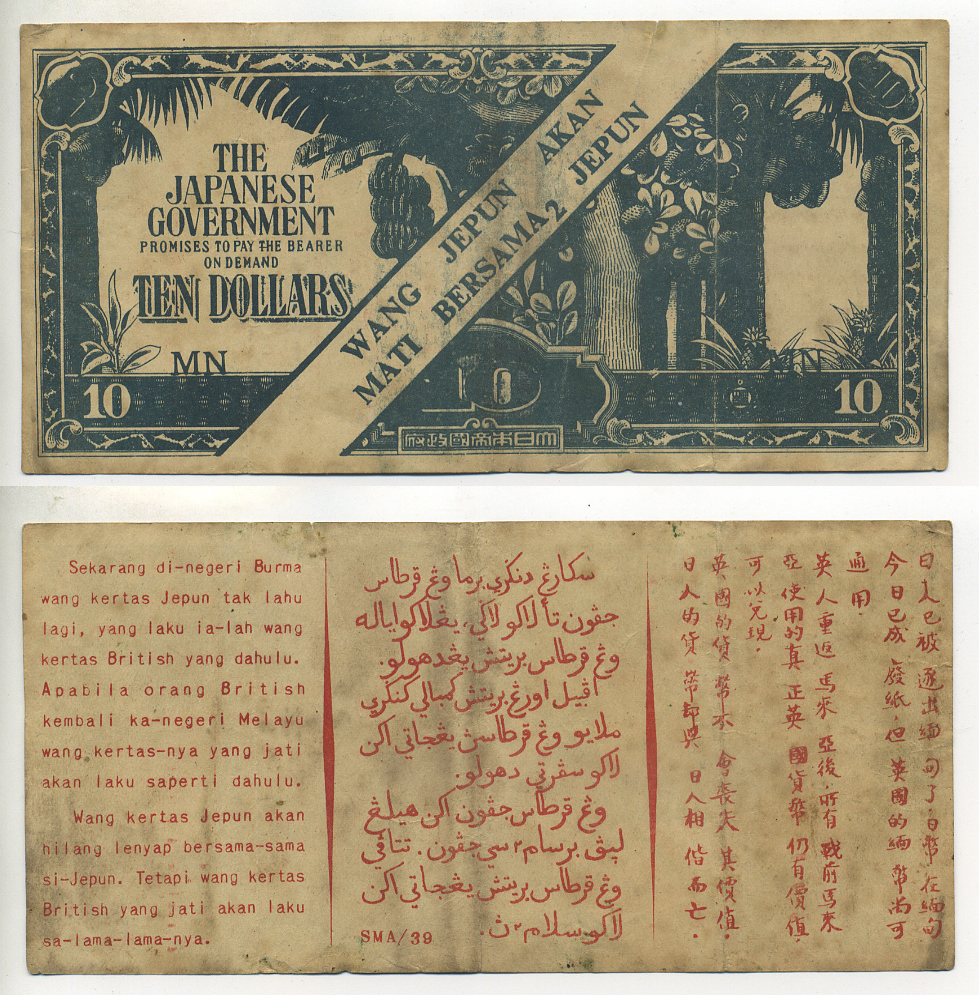 THE
JAPANESE
GOVERNMENT
PROMISES TO PAY THE BEARER
ON DEMAND
TEN DOLLARS
MN
MN
10
10
10
大日本帝國政府
WANG JEPUN AKAN
MATI BERSAMA2 JEPUN
Sekarang di-negeri Burma
wang kertas Jepun tak lahu
lagi, yang laku ia-lah wang
kertas British yang dahulu.
Apabila orang British
kembali ka-negeri Melayu
wang kertas-nya yang jati
akan laku saperti dahulu.
Wang kertas Jepun akan
hilang lenyap bersama-sama
si-Jepun. Tetapi wang kertas
British yang jati akan laku
sa-lama-lama-nya.
سكارڠ دنڬري برما وڠ قرطاس
جڤون تأ لاكو لاڬي، يڠ لاكو اياله
وڠ قرطاس بريتش يڠ دهولو.
اڤبيل اورڠ بريتش كمبالي كنڬري
ملايو وڠ قرطاسڽ يڠ جاتي اكن
لاكو سڤرتي دهولو.
وڠ قرطاس جڤون اكن هيلڠ
ليڤ برسام٢ سي جڤون. تتاڤي
وڠ قرطاس بريتش يڠ جاتي اكن
لاكو سلام٢ڽ.
SMA/39
日人已被逐出緬甸了,日幣在緬甸
今日已成廢紙,但英國的緬幣尚可
通用
英人重返馬來亞後,所有戰前馬來
亞使用的真正英國貨幣仍有價值,
可以兌現.
英國的貨幣不會喪失其價值,
日人的貨幣却與日人相偕而亡.